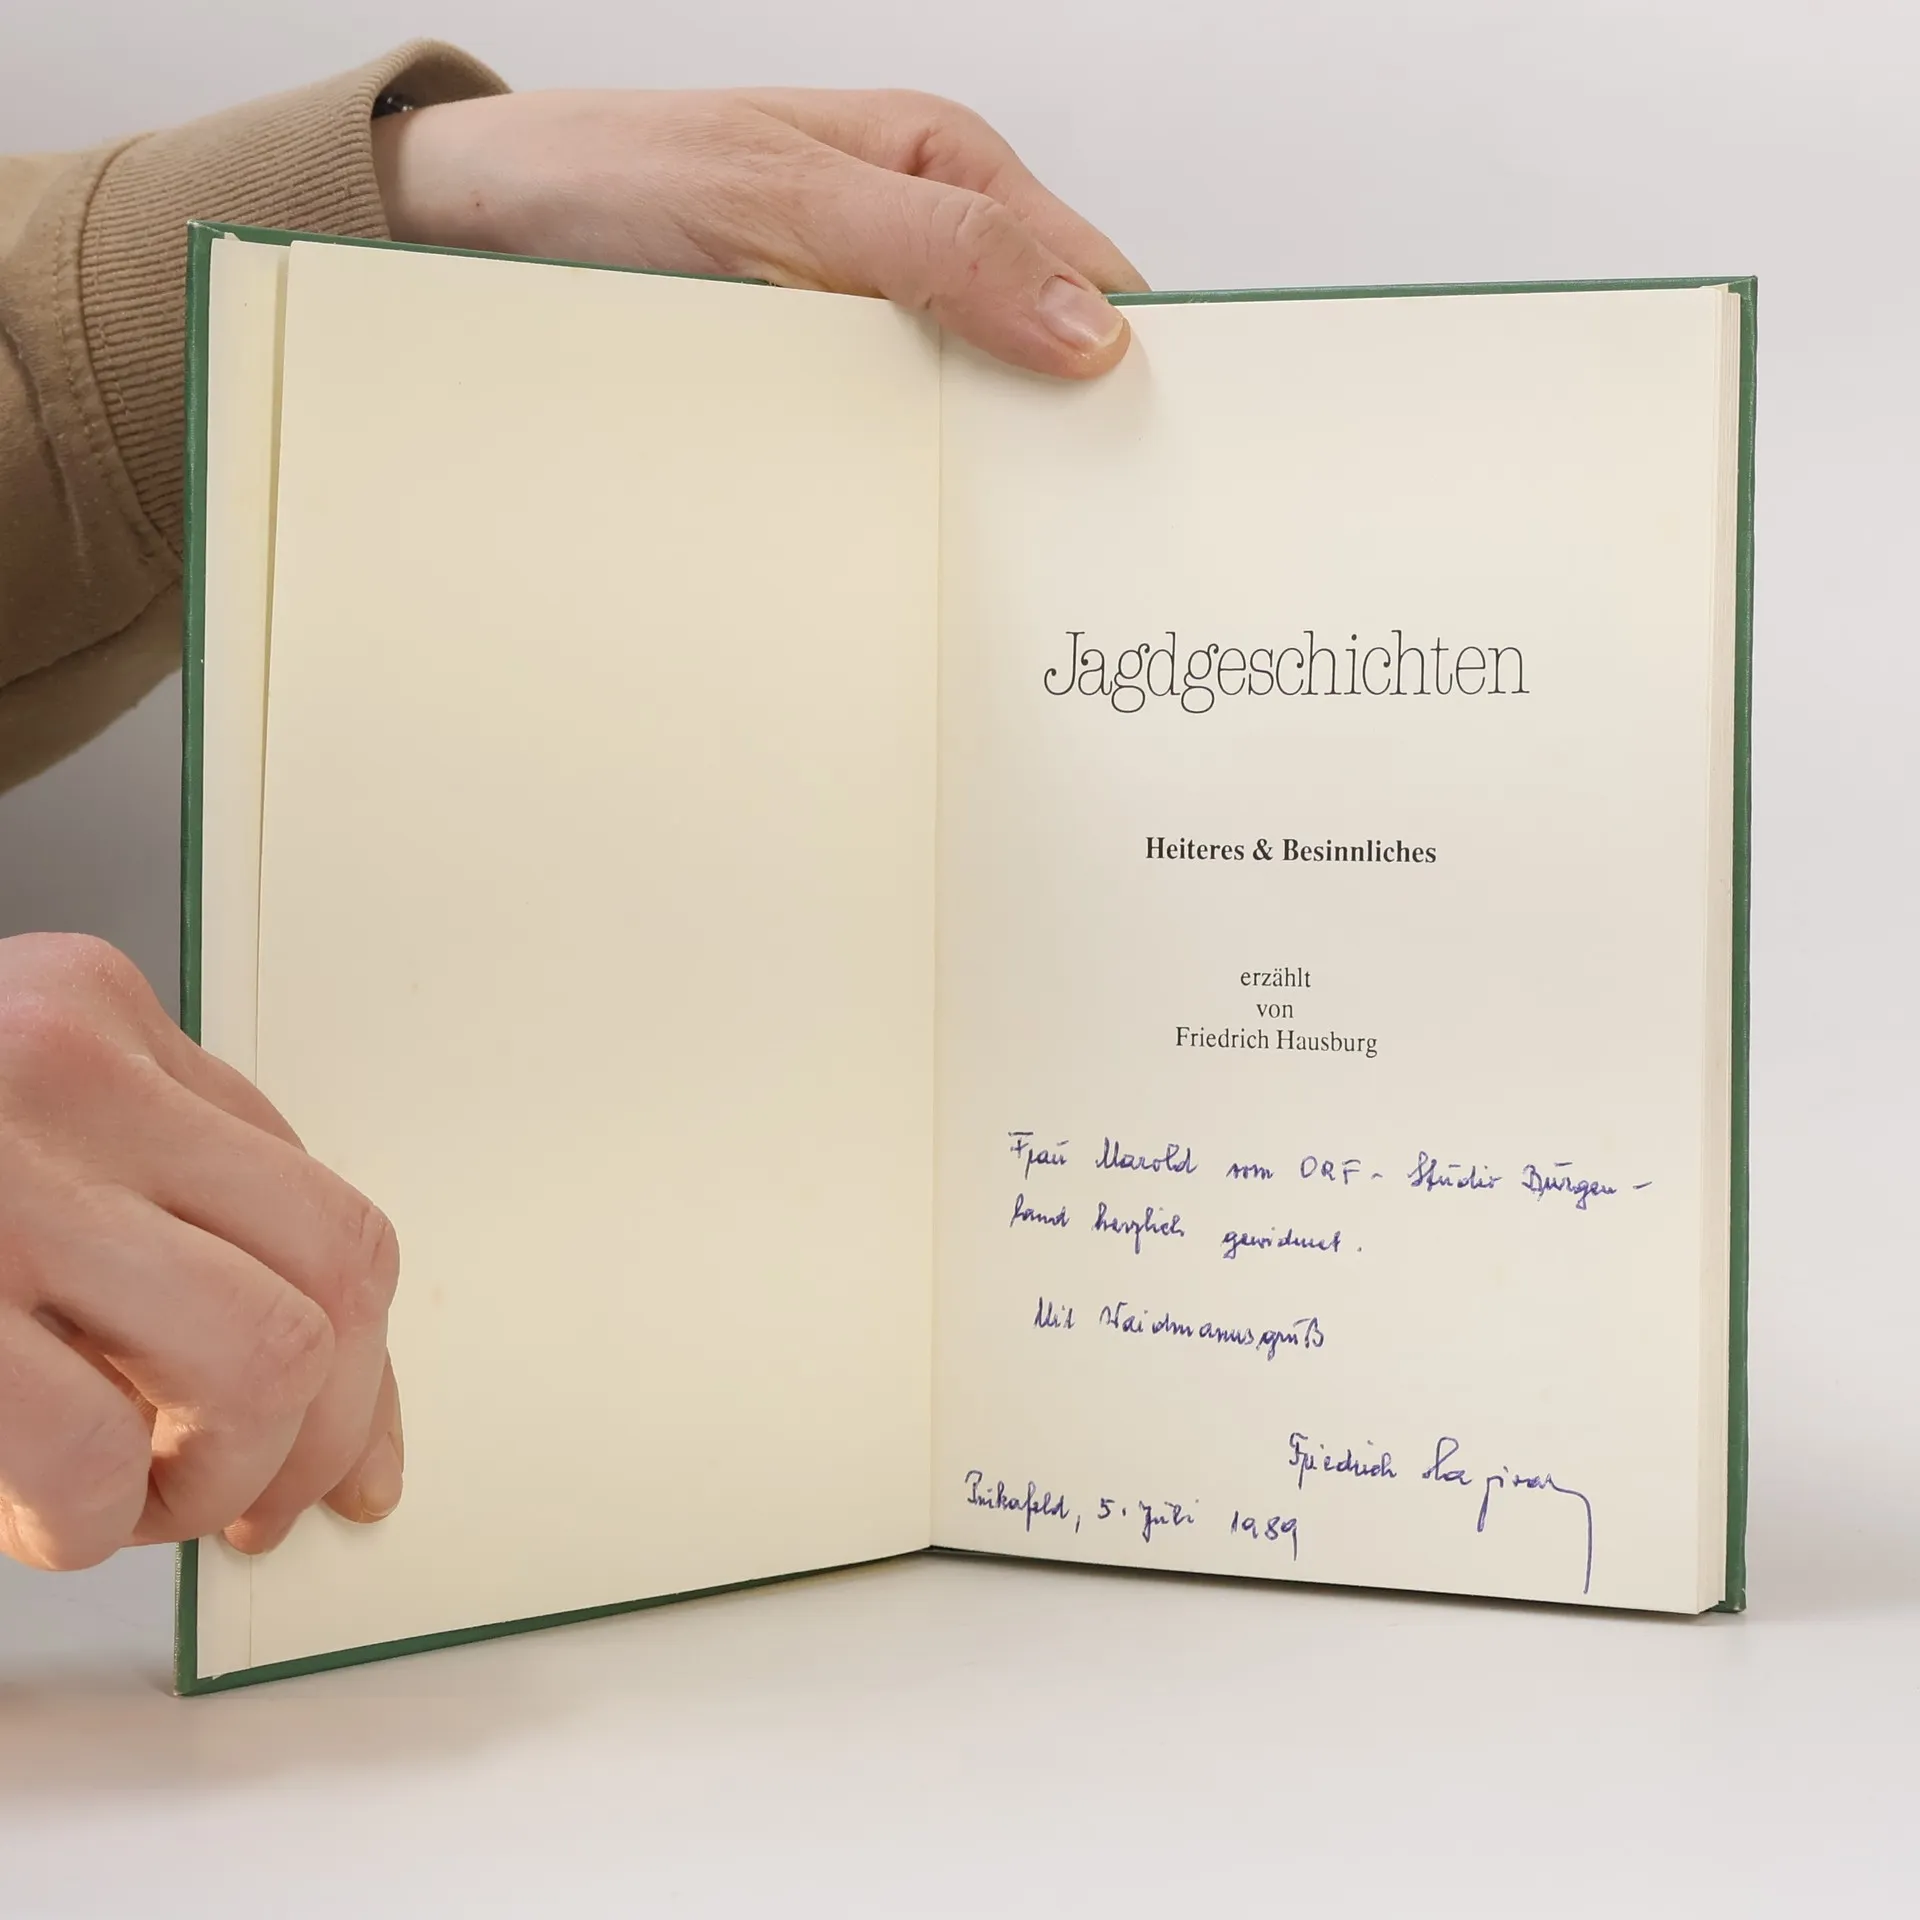 Jagdgeschichten
Heiteres & Besinnliches
erzählt
von
Friedrich Hausburg
Frau Marold vom ORF - Studio Burgen-
land herzlich gewidmet.
Mit Waidmannsgruß
Friedrich
Pinkafeld, 5. Juli 1989